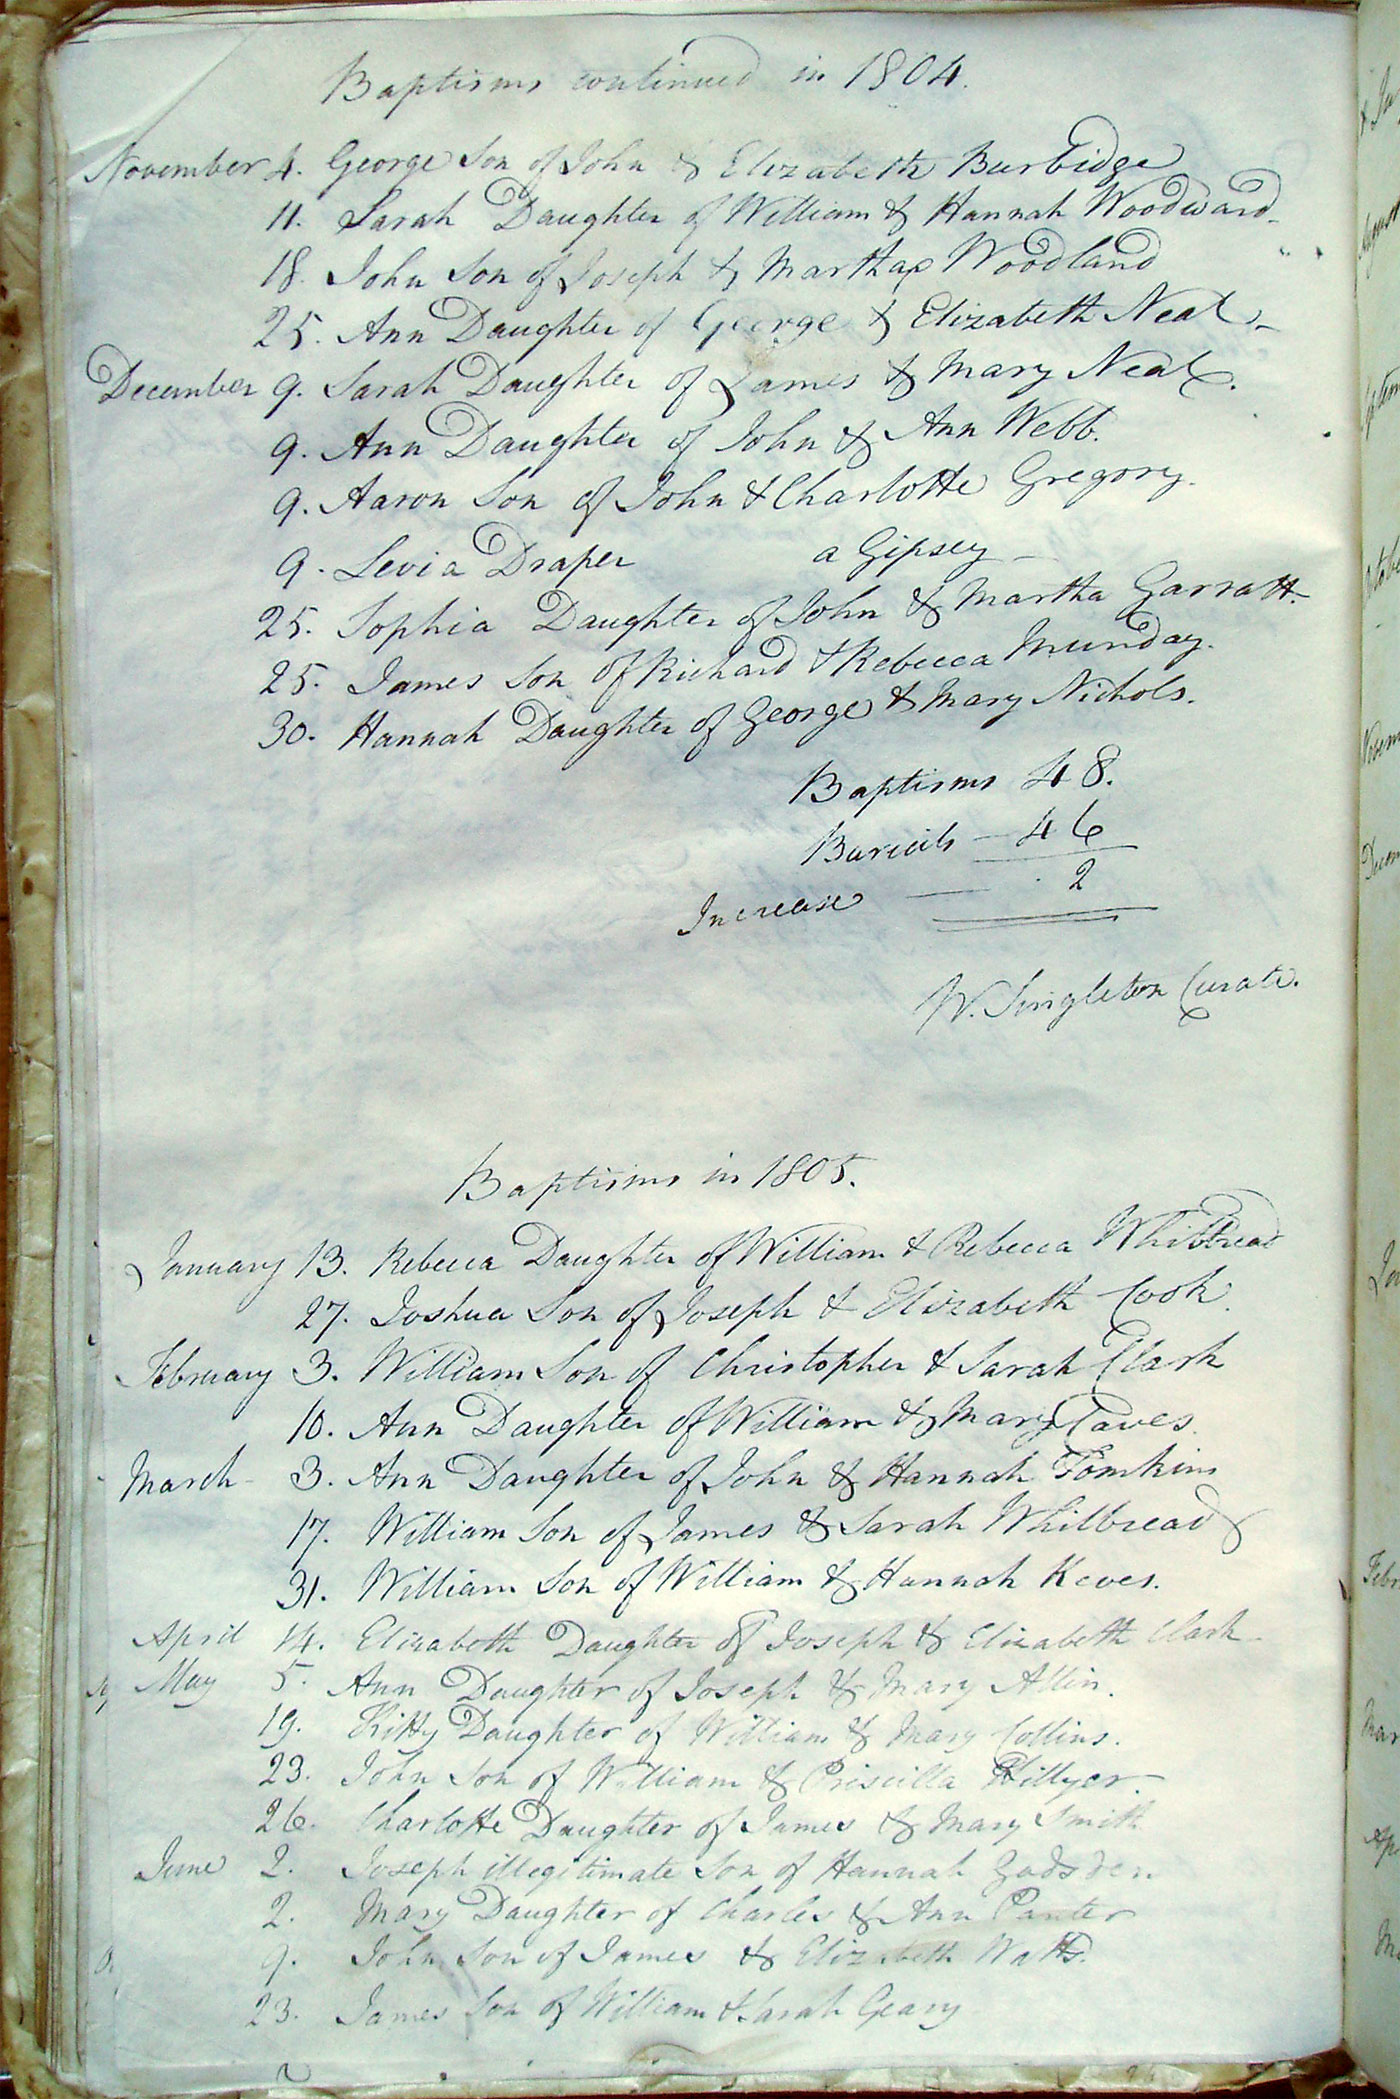 Baptisms continued in 1804.
November 4. George Son of John & Elizabeth Burbidge
11. Sarah Daughter of William & Hannah Woodward
18. John Son of Joseph & Martha Woodland
25. Ann Daughter of George & Elizabeth Neal
December 9. Sarah Daughter of James & Mary Neal.
9. Ann Daughter of John & Ann Webb.
9. Aaron Son of John & Charlotte Gregory.
9. Levia Draper a Gipsey
25. Sophia Daughter of John & Martha Garratt.
25. James Son of Richard & Rebecca Munday.
30. Hannah Daughter of George & Mary Nichols.
Baptisms 48.
Burials 46
Increase 2
W. Singleton Curate.
Baptisms in 1805.
January 13. Rebecca Daughter of William & Rebecca Whitbread
27. Joshua Son of Joseph & Elizabeth Cook.
February 3. William Son of Christopher & Sarah Clark
10. Ann Daughter of William & Mary Caves.
March 3. Ann Daughter of John & Hannah Tomkins
17. William Son of James & Sarah Whitbread
31. William Son of William & Hannah Keves.
April 14. Elizabeth Daughter of Joseph & Elizabeth Clark
May 5. Ann Daughter of Joseph & Mary Allin.
19. Kitty Daughter of William & Mary Collins.
23. John Son of William & Priscilla Hillyer.
26. Charlotte Daughter of James & Mary Smith
June 2. Joseph illegitimate Son of Hannah Gadsden
2. Mary Daughter of Charles & Ann Panter
9. John Son of James & Elizabeth Watts.
23. James Son of William & Sarah Geary